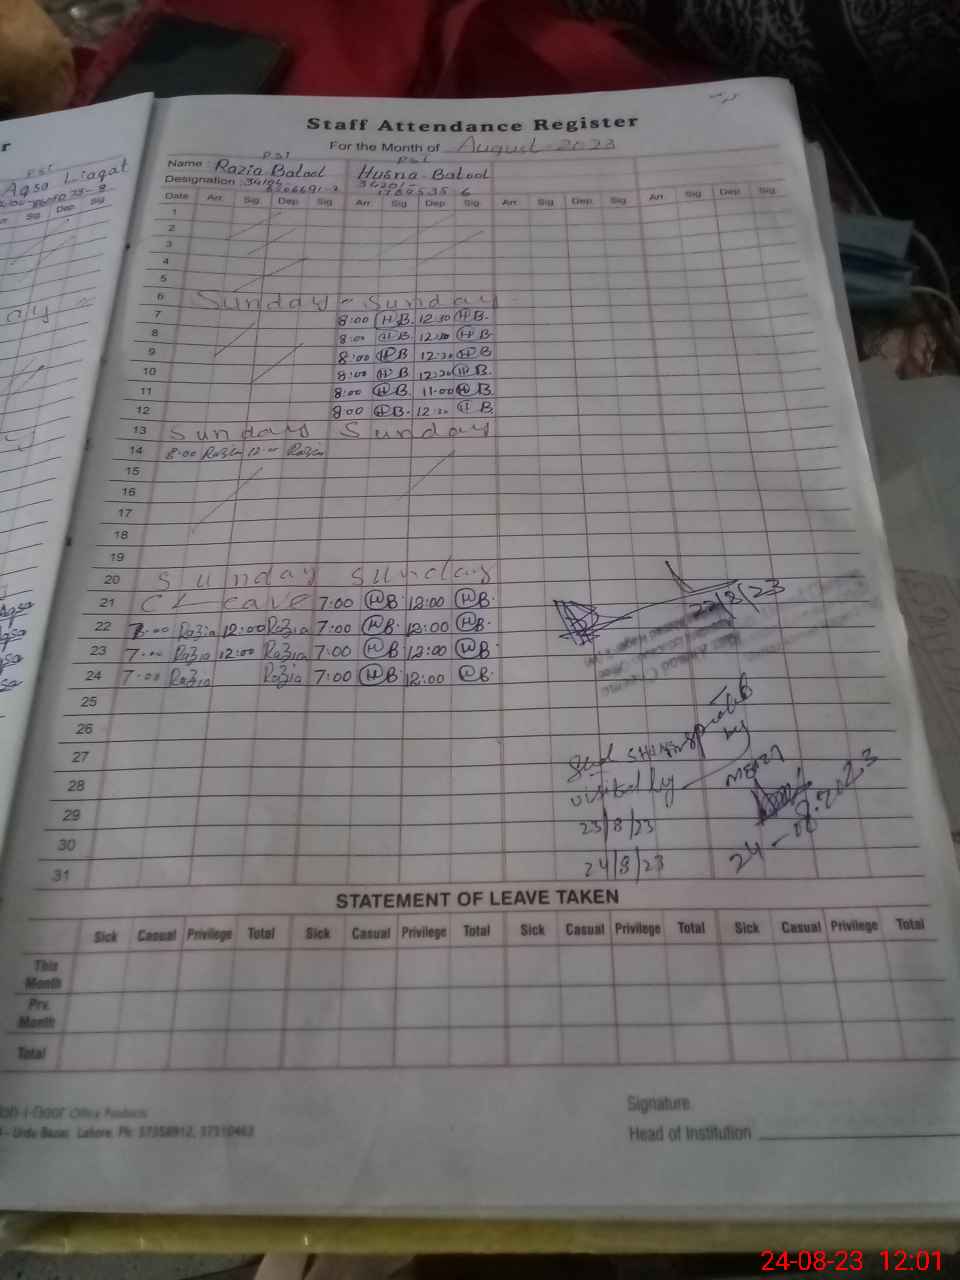 Staff Attendance Register
For the Month of August - 2023
PST PST
Name : Razia Batool Husna Batool
Designation :
Date Arr. Sig. Dep. Sig. Arr. Sig. Dep. Sig. Arr. Sig. Dep. Sig. Arr. Sig. Dep. Sig.
1
2
3
4
5
6 Sunday - Sunday
7 8:00 H B. 12:30 H B.
8 8:00 H B. 12:30 H B.
9 8:00 H B 12:30 H B
10 8:00 H B 12:30 H B.
11 8:00 H B. 11:00 H B.
12 8:00 H B. 12:30 H B.
13 Sunday Sunday
14 8:00 Razia 12:00 Razia
15
16
17
18
19
20 Sunday Sunday
21 C Leave 7:00 H B. 12:00 H B.
22 7:00 Razia 12:00 Razia 7:00 H B. 12:00 H B.
23 7:00 Razia 12:00 Razia 7:00 H B. 12:00 H B.
24 7:00 Razia Razia 7:00 H B. 12:00 H B.
25
26
27
28
29
30
31
22/8/23
visited by
23/8/23
24/8/23
24-08-2023
STATEMENT OF LEAVE TAKEN
Sick Casual Privilege Total Sick Casual Privilege Total Sick Casual Privilege Total Sick Casual Privilege Total
This Month
Prv. Month
Total
Office Products
Urdu Bazar, Lahore. Ph: 37358912, 37310462
Signature
Head of Institution
PST
Aqsa Liaqat
Sig. Dep. Sig.
Aqsa
24-08-23 12:01